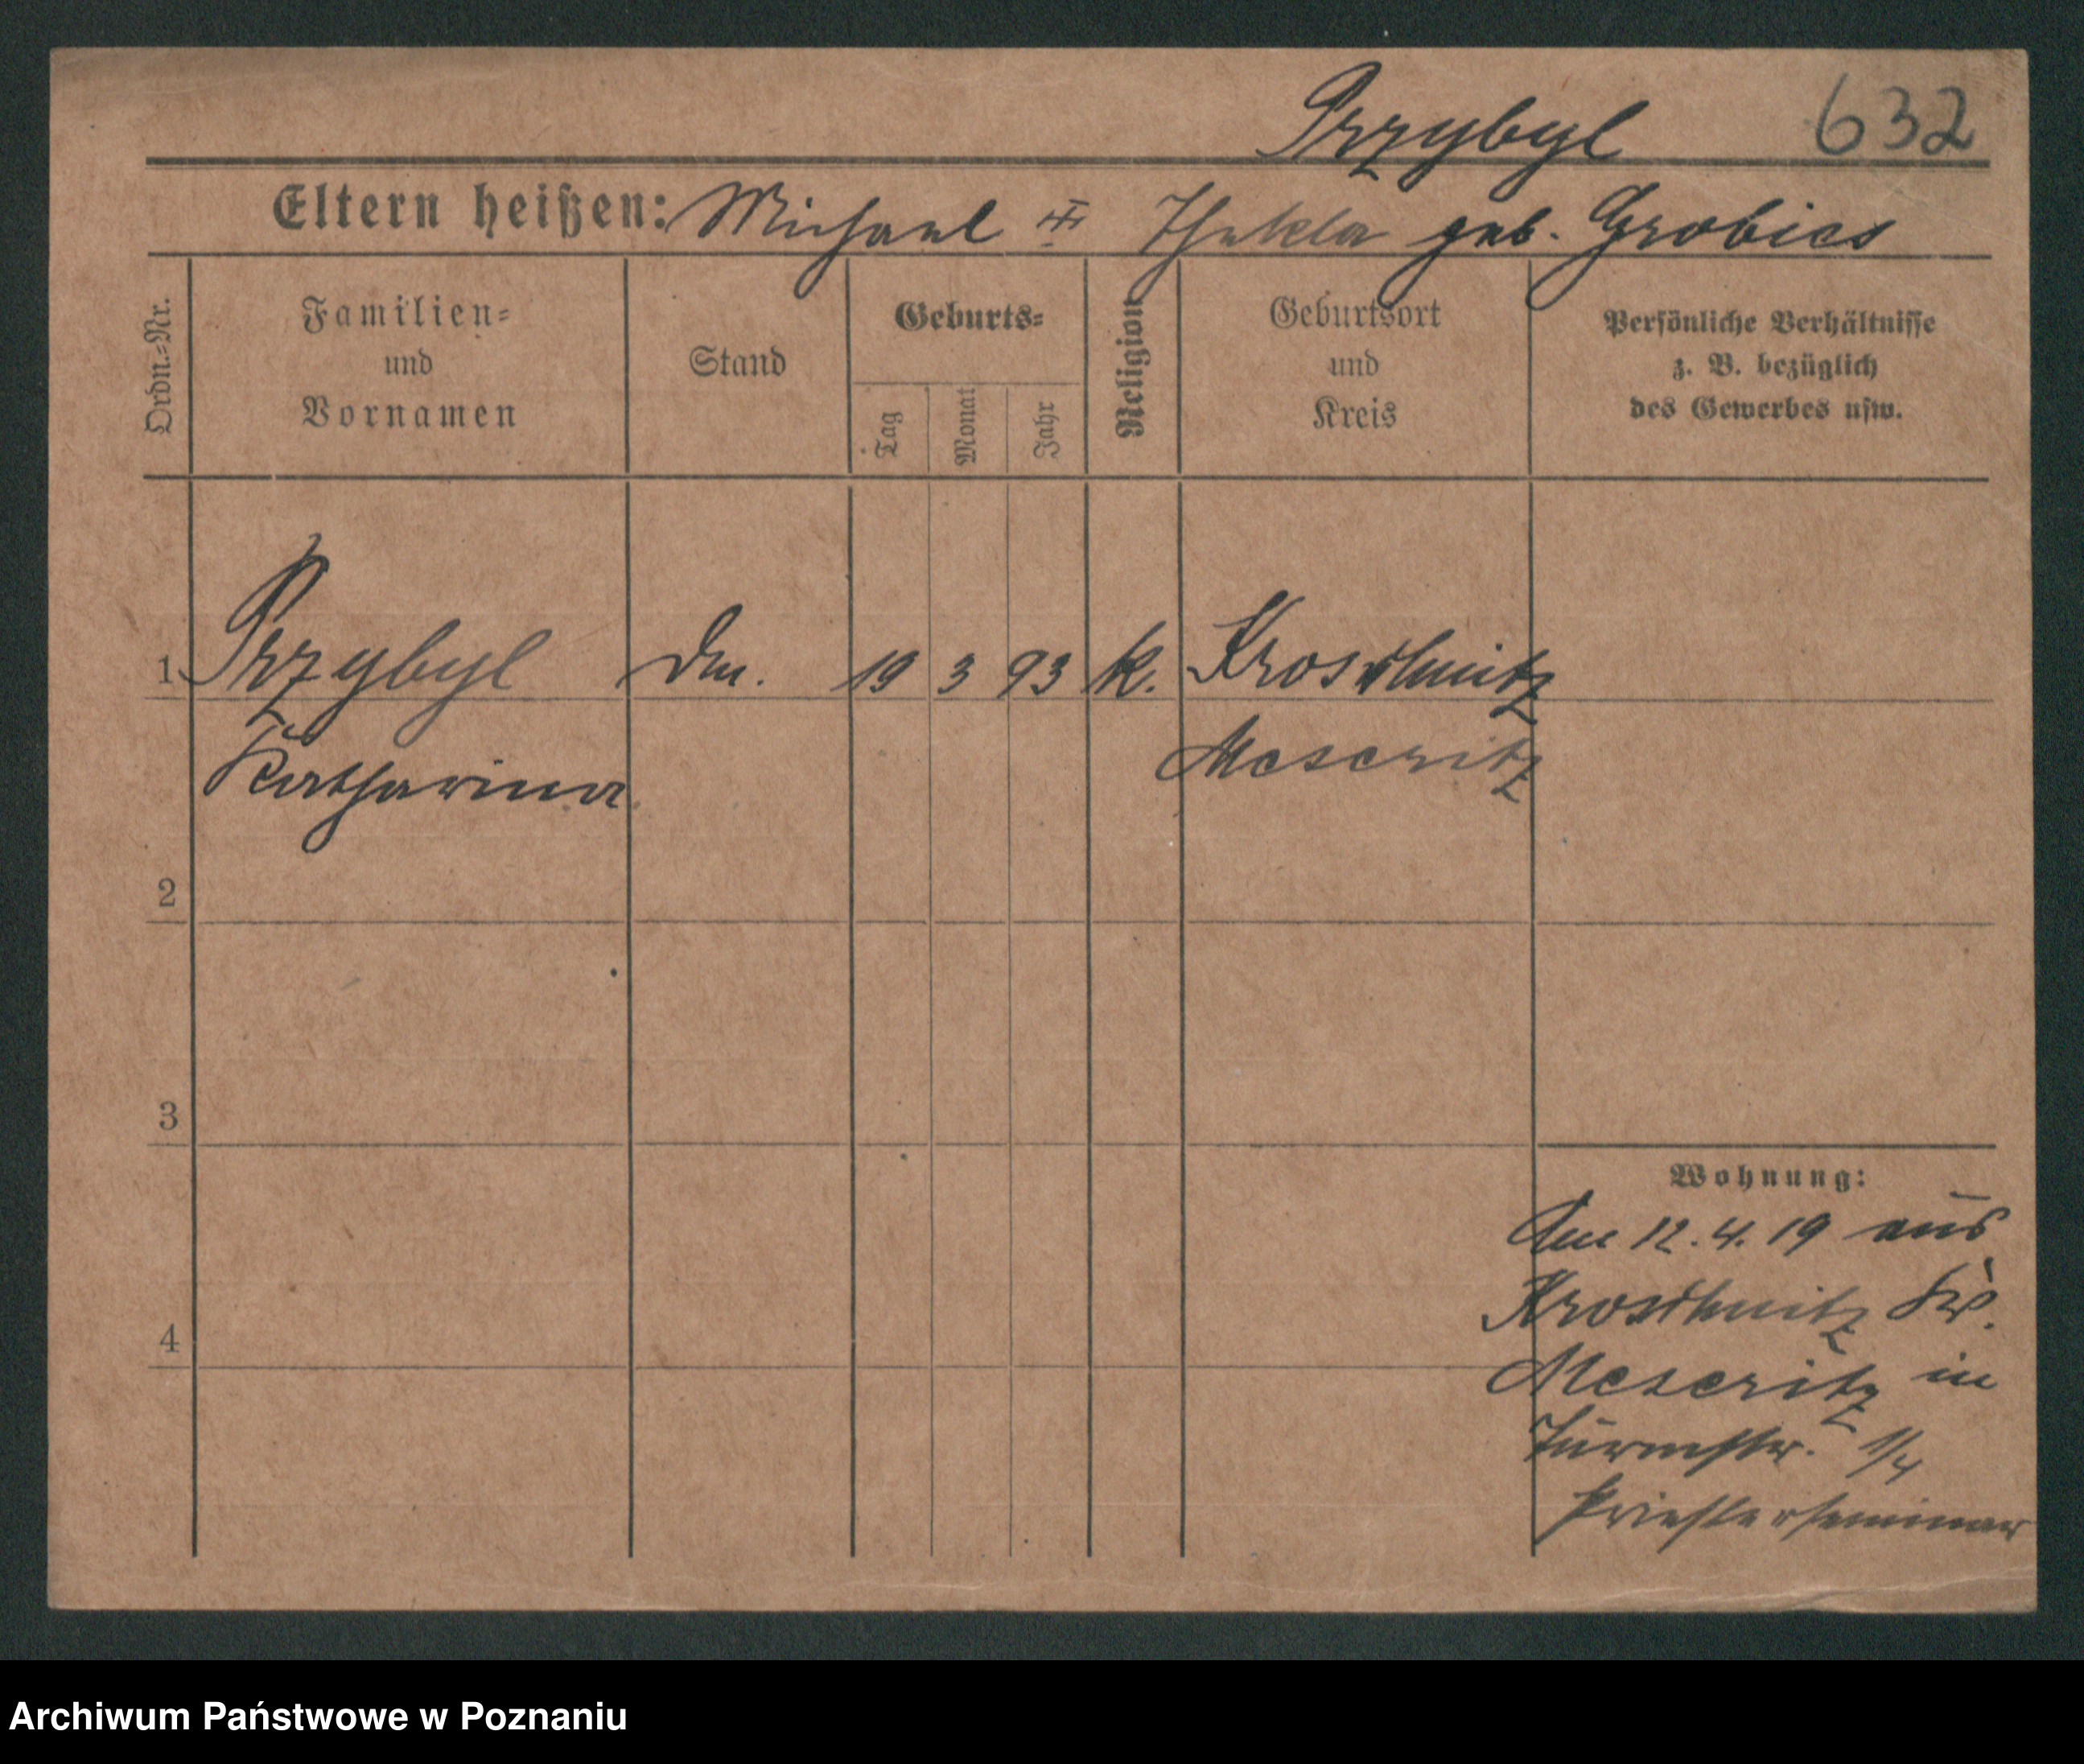 Przybyl 632
Eltern heißen: Michael u Thekla geb. Grobics
Ordn.-Nr.
Familien-
und
Vornamen
Stand
Geburts-
Tag
Monat
Jahr
Religion
Geburtsort
und
Kreis
Persönliche Verhältnisse
z. B. bezüglich
des Gewerbes usw.
1 Przybyl 19 3 93 k. Kroschnitz
Katharina Meseritz
2
3
4
Wohnung:
Am 12.4.19 aus
Kroschnitz Krs.
Meseritz in
Turmstr. 1/4
Priesterseminar
Archiwum Państwowe w Poznaniu